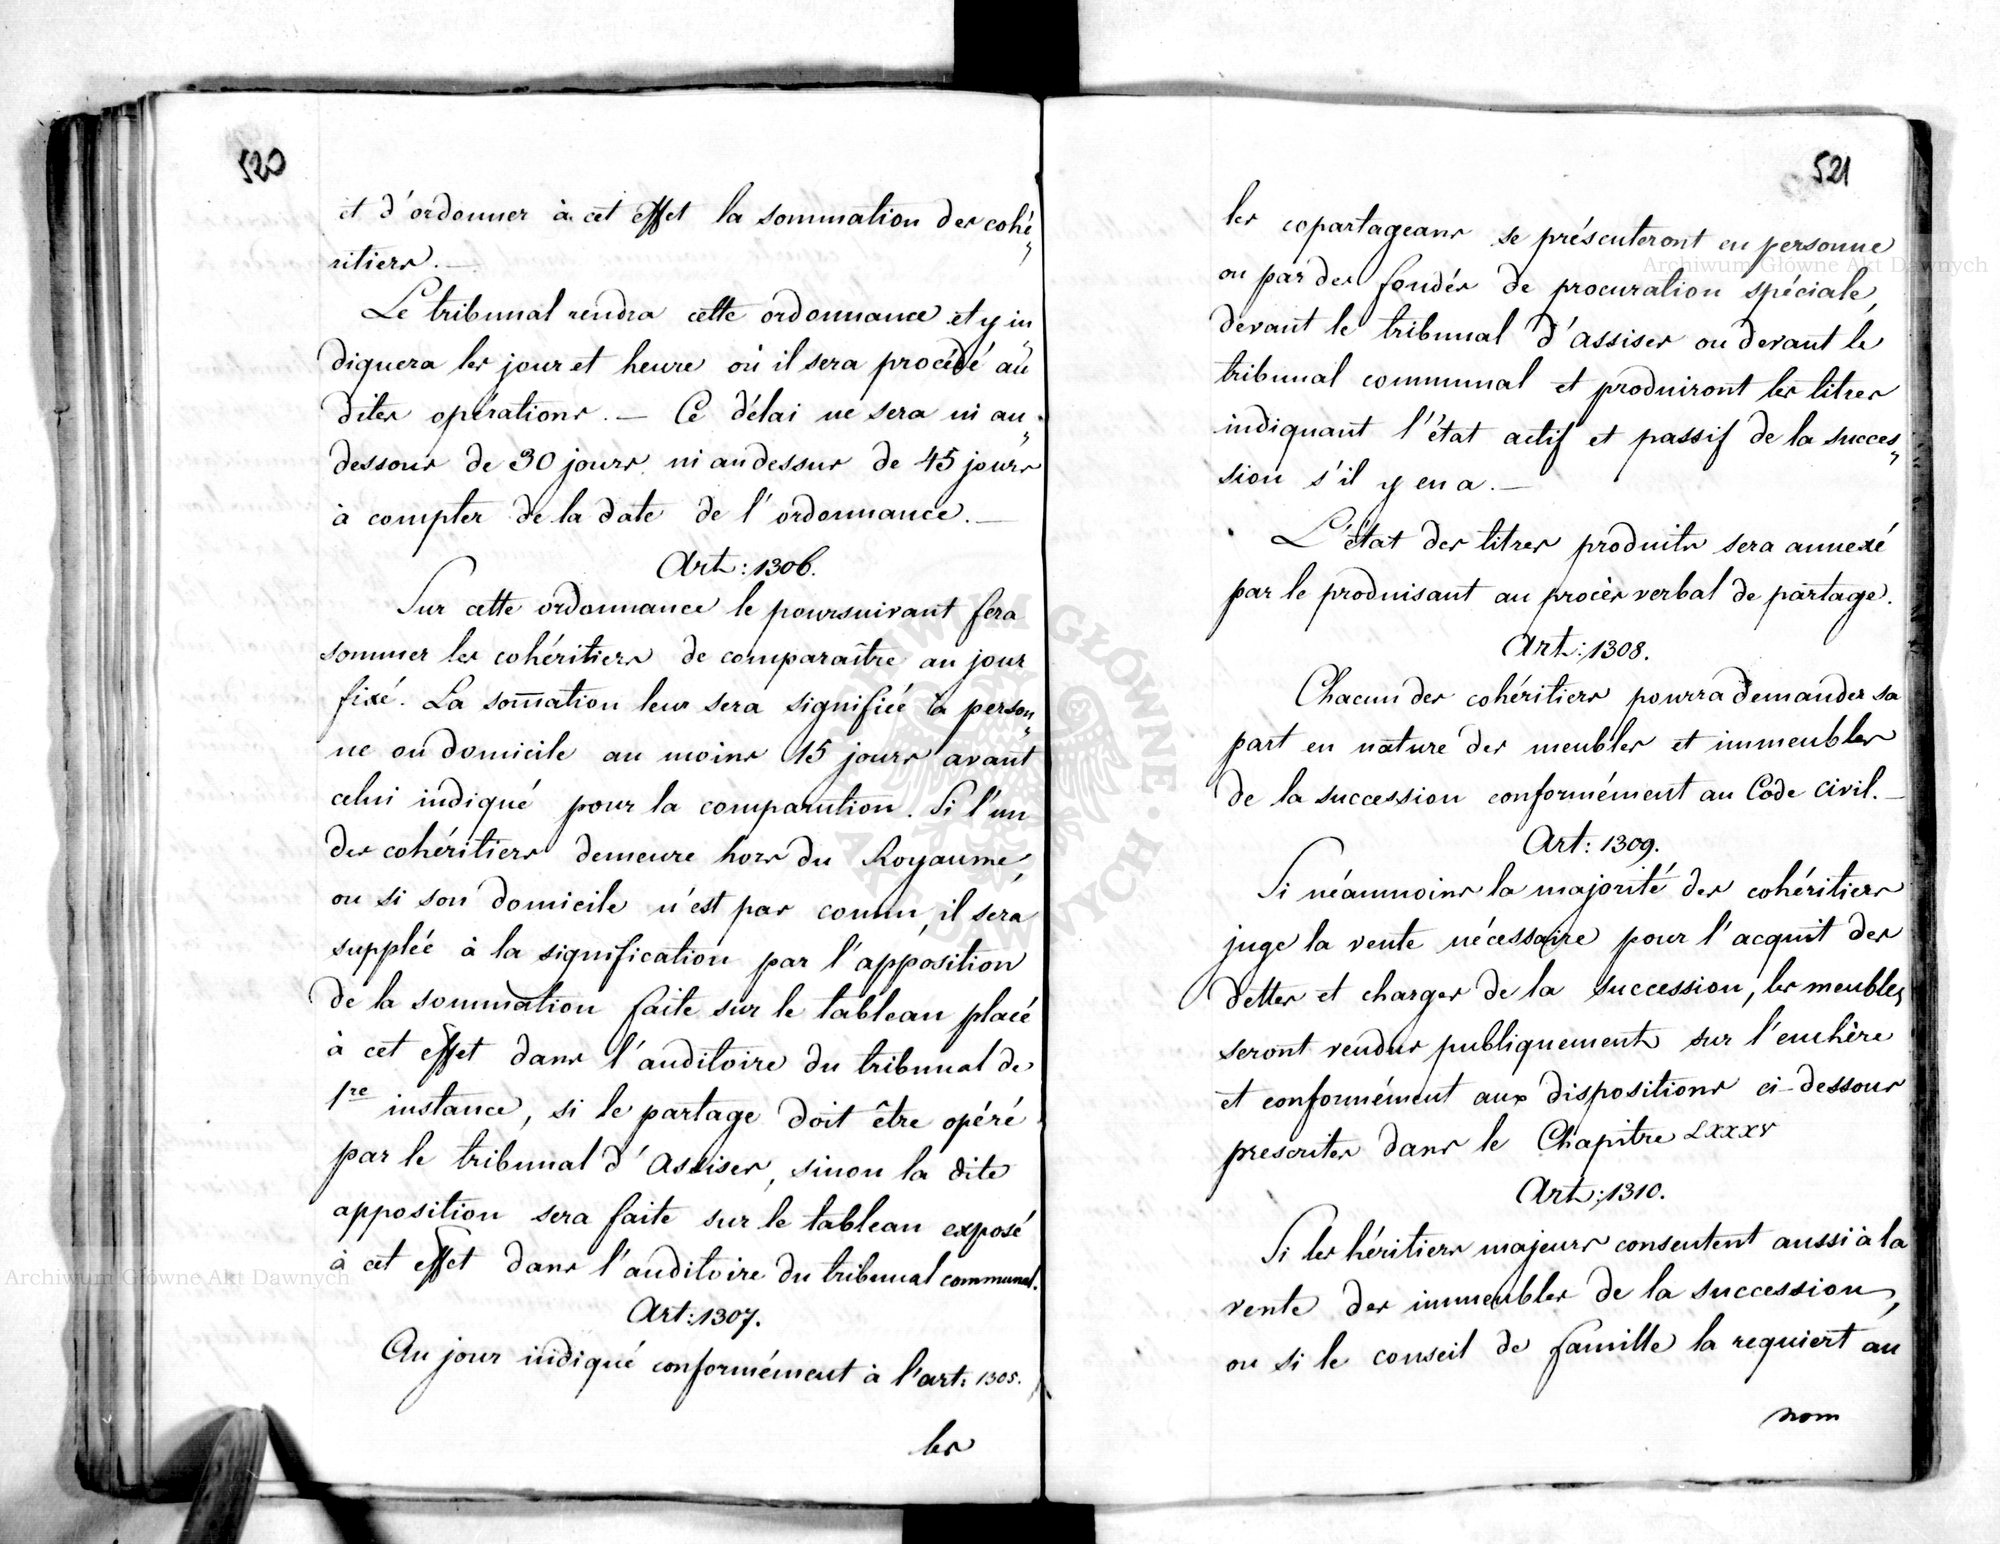 520
et d'ordonner à cet effet la sommation des cohé„
ritiers. —
Le tribunal rendra cette ordonnance et y in„
diquera les jour et heure où il sera procédé au„
dites opérations. — Ce délai ne sera ni au„
dessous de 30 jours ni audessus de 45 jours
à compter de la date de l'ordonnance. —
Art: 1306.
Sur cette ordonnance le poursuivant fera
sommer les cohéritiers de comparaître au jour
fixé. La som̄ation leur sera signifiée à person„
ne ou domicile au moins 15 jours avant
celui indiqué pour la comparution. Si l'un
des cohéritiers demeure hors du Royaume,
ou si son domicile n'est pas connu, il sera
suppléé à la signification par l'apposition
de la sommation faite sur le tableau placé
à cet effet dans l'auditoire du tribunal de
1re instance, si le partage doit être opéré
par le tribunal d'Assises, sinon la dite
apposition sera faite sur le tableau exposé
à cet effet dans l'auditoire du tribunal communal.
Art: 1307.
Au jour indiqué conformément à l'art: 1305.
les
521
les copartageans se présenteront en personne
ou par des fondés de procuration spéciale,
devant le tribunal d'Assises ou devant le
tribunal communal et produiront les titres
indiquant l'état actif et passif de la succes„
sion s'il y en a. —
L'état des titres produits sera annexé
par le produisant au procès verbal de partage.
Art: 1308.
Chacun des cohéritiers pourra demander sa
part en nature des meubles et immeubles
de la succession conformément au Code Civil. —
Art: 1309.
Si néanmoins la majorité des cohéritiers
juge la vente nécessaire pour l'acquit des
dettes et charges de la succession, les meubles
seront vendus publiquement sur l'enchère
et conformément aux dispositions ci-dessous
prescrites dans le Chapitre LXXXV
Art: 1310.
Si les héritiers majeurs consentent aussi à la
vente des immeubles de la succession,
ou si le conseil de famille la requiert au
nom
Archiwum Główne Akt Dawnych
Archiwum Główne Akt Dawnych
ARCHIWUM GŁÓWNE AKT DAWNYCH